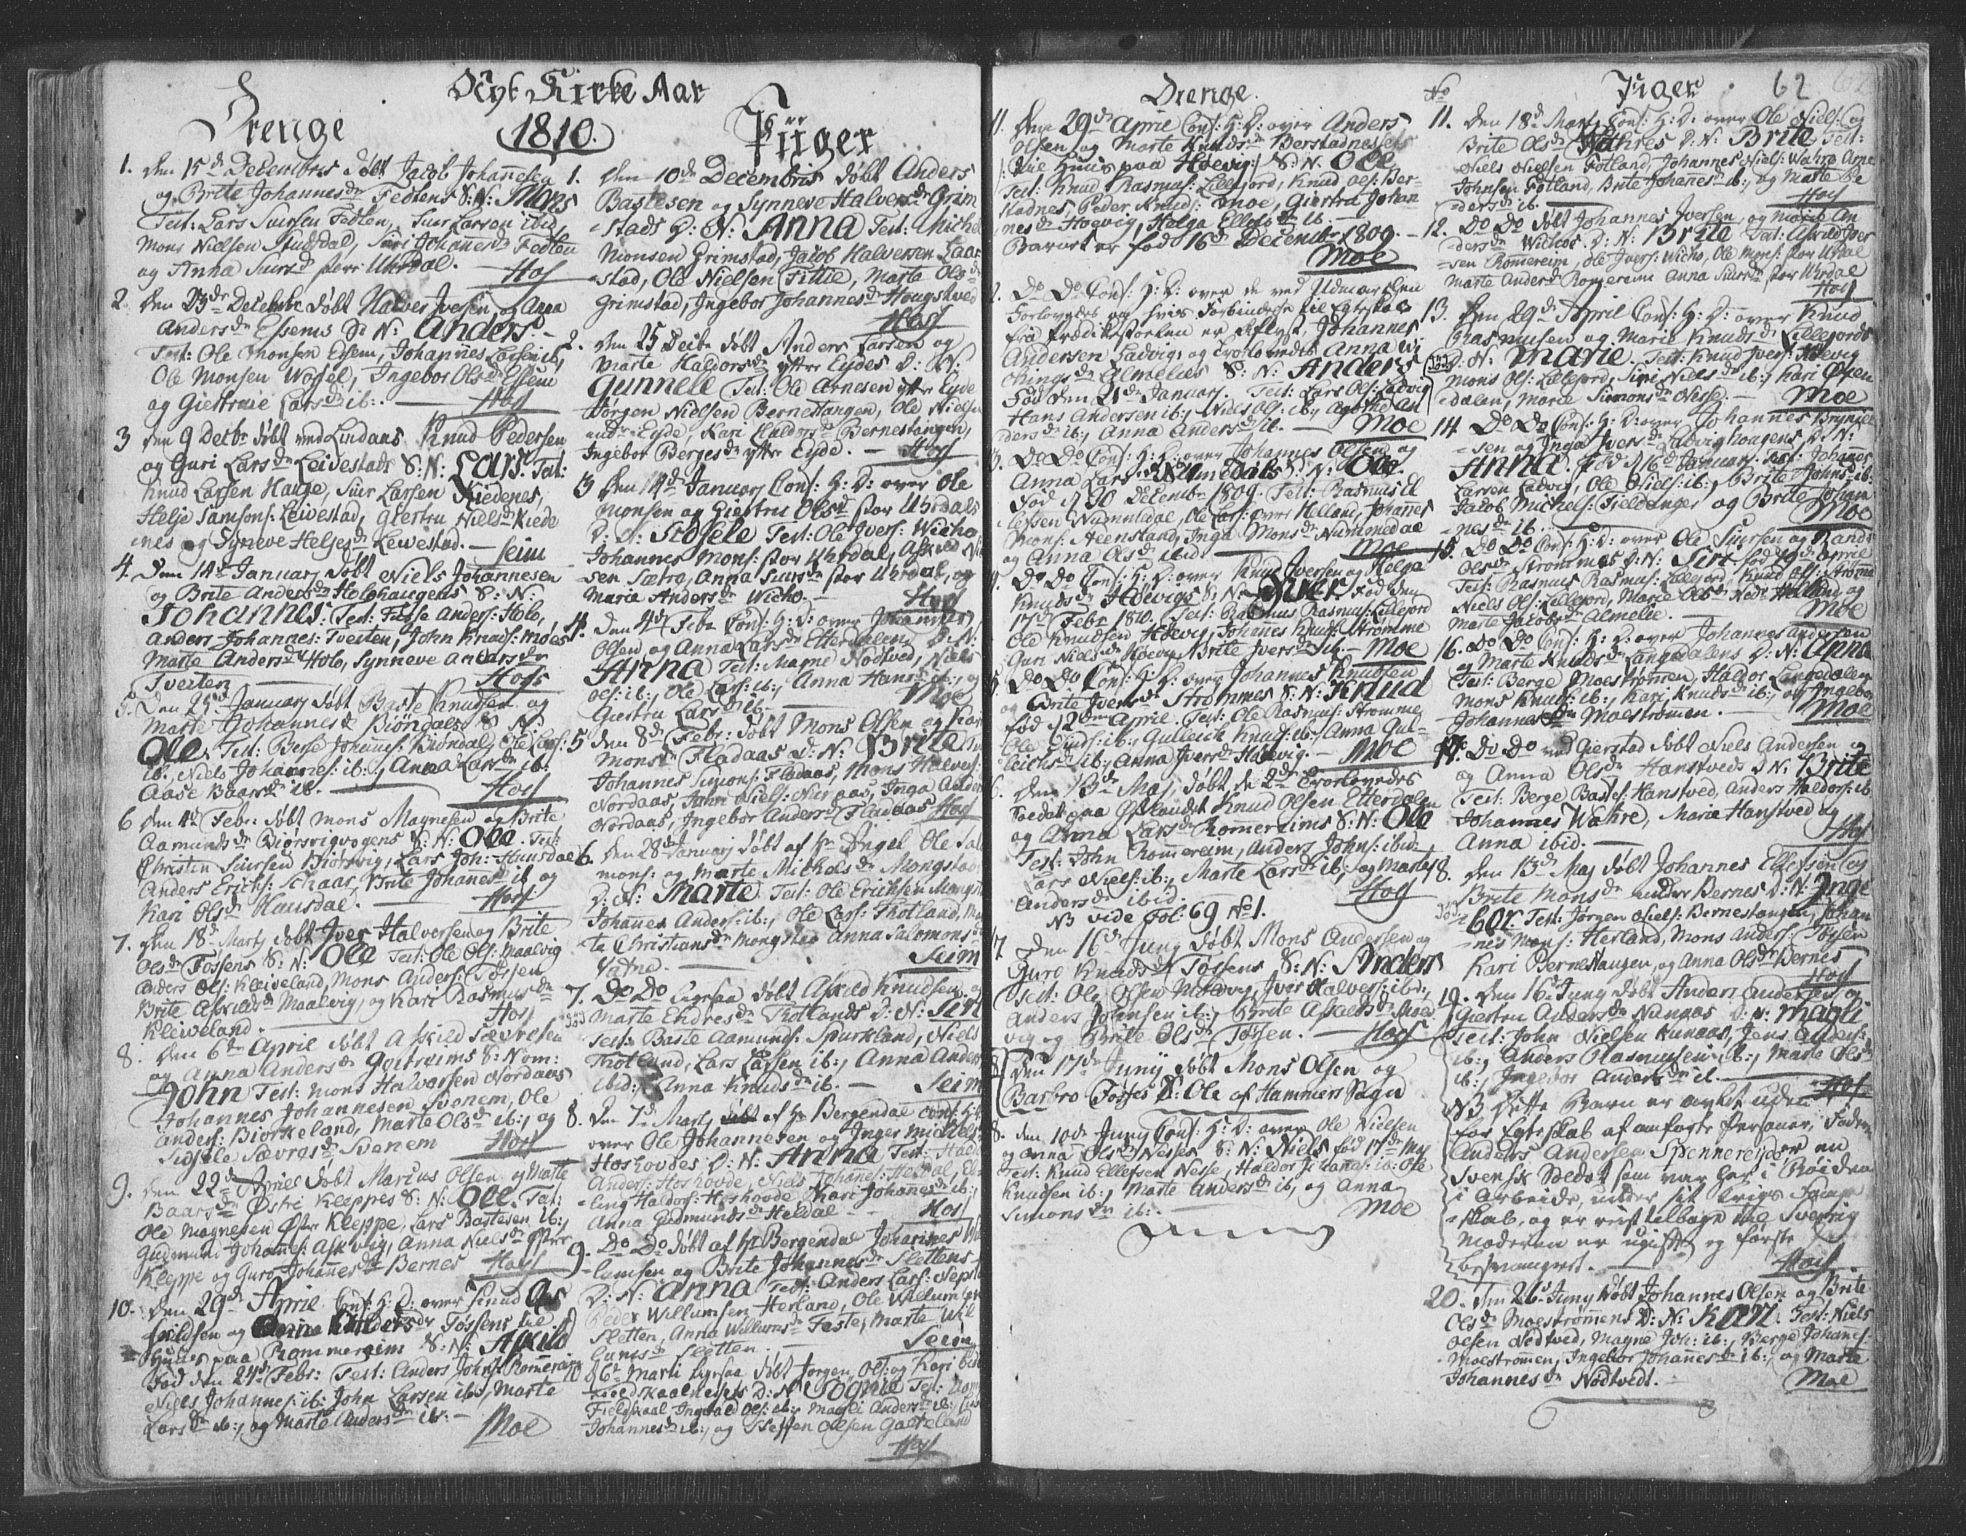 Nyt Kirke Aar
1810.
Drenge
1. Den 15de Decembris døbt Jacob Johannesen
og Brite Johannesdr Fedtens S: N: Mons
Test: Lars Siursen Fedten, Siur Larsen ibid,
Mons Nielsen Stusdal, Siri Johannesdr Fedten
og Anna Siursdr stor Uhrdal. Hoss
2. Den 23de Decembr døbt Halver Iversen og Anna
Andersdr Essems S: N: Anders
Test: Ole Monsen Essem, Johannes Larsen ib,
Ole Monsen Wogel, Ingebor Olsdr Essem
og Giertrue Larsdr ib: Hoss
3 den 9 Decbr døbt ved Lindaas Knud Pedersen
og Guri Larsdr Leivestads S: N: Lars. Test:
Knud Larsen Hauge, Siur Larsen Kiedenes,
Helje Samsons: Leivestad, Giertru Nielsdr Kiede
nes og Syneve Helsesdr Leivestad. Seim
4. Den 14de January døbt Niels Johannesen
og Brite Andersdr Holehaugens S: N:
Johannes. Test: Anders: Hole,
Anders Johannes: Tveiten, John Knuds: Moes
Marte Andersdr Hole, Synneve Andersdr
Tveiten Hoss
5. Den 25de January døbt Baste Knudsen og
Marte Johannesdr Biøndals S: N:
Ole. Test: Berse Johannes: Biøndal, Ole Lars:
ib. Niels Johannes: ib:, Anna Larsdr ib.
Aase Baarsdr ib. Hoss
6 Den 4de Febr: døbt Mons Magnesen og Brite
Aamundsdr Biørsvigvogens S: N: Ole Test:
Christen Siursen Biørsvig, Lars Joh: Stuusdal
Anders Erichs: Schaar, Brite Johannesdr ib og
Kari Olsdr Hausdal. Hoss
7. Den 18de Marty døbt Iver Halversen og Brite
Olsdr Fossens S: N: Ole Test: Ole Ols: Maalvig
Anders Ols: Kleiveland, Mons Anders: Tossen
Brite Askildsdr Maalvig, og Kari Rasmusdr
Kleiveland. Hoss
8. Den 6te April døbt Askild Sævresen
og Anna Andersdr S: Nom:
John Test: Mons Halversen Nordaas
Johannes Johannesen Svenem, Ole
Anders: Biørkeland, Marte Olsdr ib:, og
Sidsele Sævrosdr Svenem Hoss
9. Den 22de April døbt Marius Olsen og Marte
Baarsdr Østre Kleppes S: N: Ole. Test:
Ole Magnesen Øfre Kleppe, Lars Bastesen ib:,
Gudmund Johannes: Askvig, Anna Nielsdr Øfre
Kleppe og Guro Johannesdr Bernes Hoss
10. Den 29de April Conf: H: D: over Knud As
kildsen og Tossens
Huus paa Rommereim S: N: Askild
Fød den 24de Febr: Test: Anders Johns: Romereim
Niels Johannes: ib: John Larsen ibd, Marte
Larsdr ib:, og Marte Andersdr ib:. Moe
Piiger
1. Den 10de Decembris døbt Anders
Bastesen og Synneve Halversdr Grim
stads D: N: Anna Test: Michel
Monsen Grimstad, Jacob Halversen
stad, Ole Nielsen Titlie, Marte Olsdr
Grimstad, Ingebor Johannesdr Hougstved
Hoss
2. Den 25 Decbr døbt Anders Larsen og
Marte Haldorsdr ytre Eydes D: N:
Gunnele Test: Ole Arnesen ytre Eyde
Jørgen Nielsen Bernestangen, Ole Nielsen
Eyde, Kari Haldorsdr Bernestangen,
Ingebor Bergesdr ytre Eyde. Hoss
3 Den 14de January Conf: H: D: over Ole
Monsen og Giertru Olsdr stor Uhrdals
D: N: Sidsele Test: Ole Ivers: Wicho
Johannes Mons: stor Uhrdal, Askild Niel
sen Sætre, Anna Siursdr stor Uhrdal, og
Maria Andersdr Wicho. Hoss
4. Den 4de Febr Conf: H: D: over Johannes
Olsen og Anna Larsdr Etterdalens D: N:
Anna Test: Magne Nodtved, Niels
Ols: ib:, Ole Lars: ib:, Anna Hansdr ib:, og
Giertru Larsdr ib. Moe
5 Den 8de Febr: døbt Mons Olsen og Kari
Monsdr Fladaas D: N: Brite
Johannes Simons: Fladaas, Mons Halvers:
Nordaas, John Niels: Nuraas, Inga Anders
Nordaas, Ingebor Andersdr Fladaas Hoss
6. Den 28de January døbt af Hr Angel Ole Salo
mons: og Marte Michelsdr Mongstads
D: N: Marte Test: Ole Erichsen Mongst
Johannes Anders: ib:, Ole Lars: Thotland, Mar
ta Christiansdr Mongstad Anna Salomonsdr
Vatne. Seim
7. Do Do Eyrsaa døbt Askild Knudsen og
Marte Endresdr Rotlands D: N: Siri
Test: Baste Aamunds: Spurkland, Niels
Thotland, Lars Larsen ib:, Anna Anders
ibid:, Anna Knudsdr ib. Seim
8. Den 7de Marty døbt af Hr Bergendal Conf: H: D:
over Ole Johannesen og Inger Michels
Hoshovdes D: N: Anna Test: Halle
Anders: Hoshovde, Niels Johannes: Heldal, El
ling Haldors: Hoshovde Kari Johannesdr ib:,
Anna Gudmundsdr Heldal Hoss
9. Do Do døbt af Hr Bergendal Johannes Wil
lumsen og Brite Johannesdr Slettens
D: N: Anna Test: Anders Lars: Sepstad
Peder Willumsen Herland, Ole Willumsen
Sletten, Anna Willumsdr Feste, Marte Wil
lumsdr Sletten. Seim
10 26te Marti Eyrsaa døbt Jørgen Ols: og Kari
Fieldskaalnesets D: N: Togrie Test:
Fieldskaal Ingvald Ols: ib:, Magli Andersdr ib:,
Johannesdr ib:, og Steffen Olsen Gaasteland
Hoss
Drenge.
11. Den 29de April Conf: H: D: over Anders
Olsen og Marte Knudsdr Berstadnesets
til Huus paa Høevig S: N: Ole
Test: Knud Rasmus: Lillefjord, Knud Ols: Ber-
stadnes Peder Knuds: Moe, Giertru Johan
nesdr Høevig, Helga Ellefsdr ib.
Barnet er fød 16de December 1809.
Moe
2. Do Do Conf: H: D: over de ved Udmarchen
Forlovedes og hvis Forbindelse til Egteskab
fra Prædikestolen er aflyst, Johannes
Andersen Ladvigs og Trolovedes Anna Wi
chingsdr Almelies S: N: Anders
Fød den 21de January. Test: Lars Ols: Ladvig
Hans Andersen ib:, Niels Ols: ib:, Agothe An
dersdr ib:, Anna Andersdr ib. Moe
3. Do Do Conf: H: D: over Johannes Olsen og
Anna Larsdr Nummedals S: N: Ole.
Fød d 30 December 1809. Test: Rasmus El
lefsen Nummedal, Ole Lars: øvre Helland, Johannes
Mons: Steensland, Inga Monsdr Nummedal
og Anna Olsdr ibid Moe
4. Do Do Conf: H: D: over Knud Iversen og Helga
Knudsdr Høevigs S: N: Iver Fød den
17de Febr 1810. Test: Rasmus Rasmus: Lillefjord
Ole Knudsen Høevig, Johannes Knuds: Strømme
Guri Nielsdr Høevig Brite Iversdr Moe
5. Do Do Conf: H: D: over Johannes Knudsen
og Brite Iversdr Strømmes S: N: Knud
Fød 12den April. Test: Ole Rasmus: Strømme
Ole Einers: ib: Gulleich Knuds: ib:, Anna Gul-
leichsdr ib:, Anna Iversdr Høevig. Moe
6. Den 13de May døbt de 2de Trolovedes
Soldat paa Udsaldet Knud Olsen Etterdalen
og Anna Larsdr Rommereims S: N: Ole
Test: John Rommereim, Anders Johns: ibid:
Lars Niels: ib:, Marte Larsdr ib:, og Marte
Andersdr ibid. Hoss
NB vide fol: 69 No 1.
7. Den 16de Juny døbt Mons Andersen og
Guro Knudsdr Tossens S: N: Anders
Test: Ole Olsen Moldvig, Iver Halvers: ibd:,
Anders Johnsen ib:, Brite Askeldsdr Mold
vig og Brite Olsdr Tossen. Hoss
Den 17de Juny døbt Mons Olsen og
Barbro Tosses S: Ole af Hammers Sogn
8. den 10de Juny Conf: H: D: over Ole Nielsen
og Anna Olsdr Nesses S: N: Niels fød 17de May
Test: Knud Ellefsen Nesse, Haldor Johans: ib: Ole
Knudsen ib:, Marte Andersdr ib, og Anna
Simonsdr ib:. Moe
No
Piger 62
11. Den 18de Marty Conf: H: D: over Ole Niels: og
Brite Olsdr Wahres D: N: Brite Test:
Niels Nielsen Fotland, Johannes Niels: Wahre Arne
Johnsen Fotland, Brite Johannesdr ib:, og Marte Pe
dersdr ib. Hoss
12. Do Do døbt Johannes Iversen og Marte An
dersdr Wichos D: N: Brite Test: Askild Iver
sen Romereim, Ole Ivers: Wicho, Ole Mons: stor Uhrdal
Marte Andersdr Romereim Anna Siursdr stor Uhrdal
Hoss
13. Den 29de April Conf: H: D: over Knud
Rasmusen og Marie Knudsdr Lillefjords
D: N: Marie. Test: Knud Ivers: Høevig
Mons Ols: Lillefjord, Siri Nielsdr ib:, Kari
dalen, Marie Simonsdr Nesse. Moe
14. Do Do Conf: H: D: over Johannes Bryniel
sen og Inga Iversdr Ladvighougens D: N:
Anna. Fød d 16de January. Test: Johannes
Larsen Ladvig, Ole Niels: ib:, Brite Johnsdr ib:
Jacob Michels: Fieldanger og Brite Johan
nesdr ib. Moe
15. Do Do Conf: H: D: over Ole Siursen og Rande
Olsdr Strømmes D: N: Siri fød April
Test: Rasmus Rasmus: Lillefjord, Knud Ols: Strømme
Niels Ols: Lillefjord, Marie Olsdr Nedr Helland og
Marte Jacobsdr Almelie. Moe
16. Do Do Conf: H: D: over Johannes Andersen
og Marte Knudsdr Langedalens D: N: Anna
Test: Berge Moestrømmen, Haldor Langedalen
Mons Knuds: ib:, Kari Knudsdr ib:, og Ingebor
Johannesdr Moestrømen. Moe
17. Do Do ved Gierstad døbt Niels Andersen
og Anna Olsdr Hanstveds D: N: Brite
Test: Berge Bastes: Hanstved, Anders Haldors: ib
Johannes Wahre, Marie Hanstved og
Anna ibid. Hoss
18. Den 13de May døbt Johannes Ellefsen og
Brite Monsdr under Bernes D: N: Inge
bor. Test: Jørgen Niels: Bernestangen, Johan
nes Mons: Herland, Mons Anders: Tossen
Kari Bernestangen, og Anna Olsdr Bernes
Hoss
19. Den 16de Juny døbt Anders Andersen og
Giertru Andersdr Nunaas D: N: Magli
Test: John Nielsen Kunaas, Jens Anders:
ib:, Anders Rasmusen ib:, Marte Olsdr
ib:, Ingebor Andersdr ib. Hoss
NB Dette Barn er avlet uden
for Egteskab af anførte Personer, Faderen
Anders Andersen Spennereid er en
Svensk Soldat som var her i Bøiden
i Arbeide, under sit Krigs Fange
skab, og er reist tilbage til Sverrig
Moderen er ugift og første
besvangret. Hoss
20. Den 26de Juny døbt Johannes Olsen og Brite
Olsdr Moestrømens D: N: Kari Test: Niels
Olsen Nodtved, Magne Joh: ib:, Berge Johanes:
Moestrømen, Ingebor Johannesdr ib:, og Marte
Johannesdr Nodtvedt. Moe